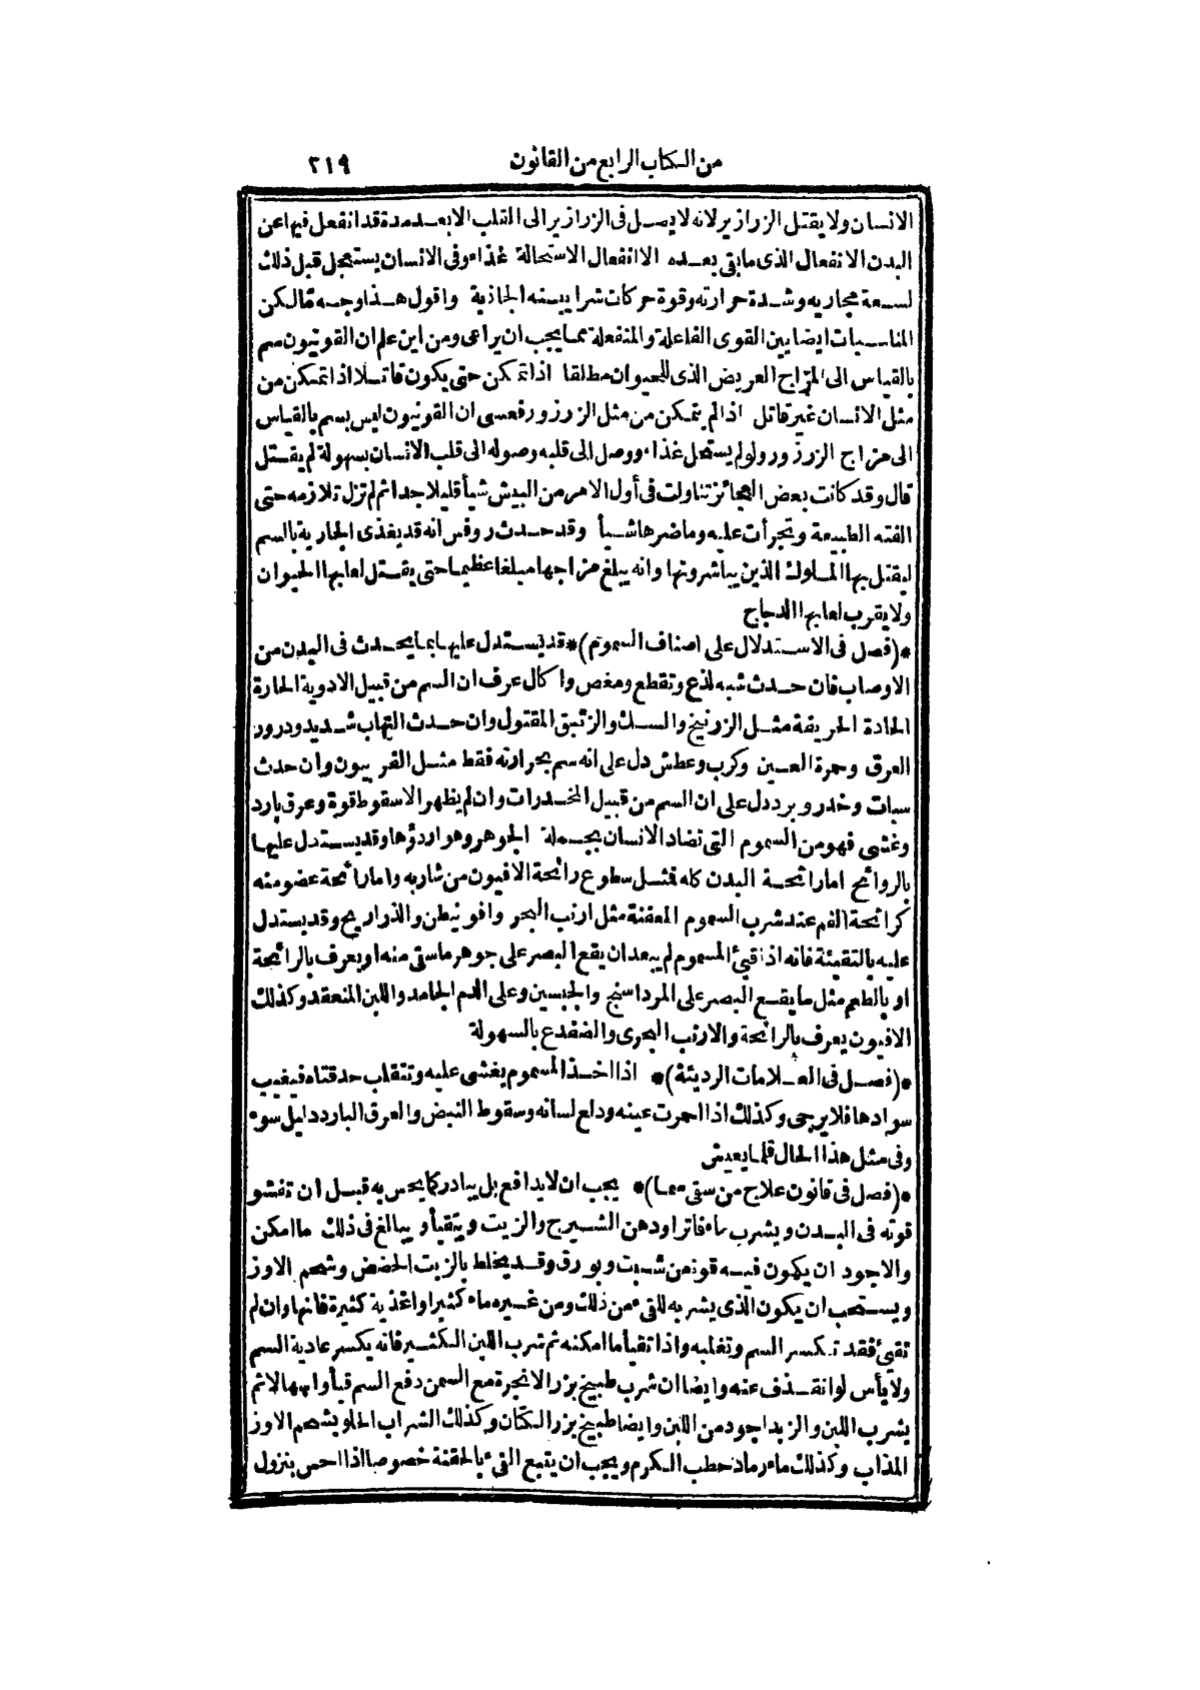 من الكتاب الرابع من القانون ٢١٩
الانسان ولا يقتل الزرازير لانه لا يصل فى الزرازير الى القلب الا بعد مدة قد انفعل فيها عن
البدن الانفعال الذى ما بقى بعده الا انفعال الاستحالة غذاء وفى الانسان يستعجل قبل ذلك
لسعة مجاريه وشدة حرارته وقوة حركات شرايينه الجاذبة واقول هذا وجه ما لكن
المناسبات ايضا بين القوى الفاعلة والمنفعلة مما يجب ان يراعى ومن اين علم ان القونيون سم
بالقياس الى المزاج العريض الذى للحيوان مطلقا اذا تمكن حتى يكون قاتلا اذا تمكن من
مثل الانسان غير قاتل اذا لم يتمكن من مثل الزرزور فعسى ان القونيون ليس بسم بالقياس
الى مزاج الزرزور ولو لم يستحل غذاء ووصل الى قلبه وصوله الى قلب الانسان بسهولة لم يقتل
قال وقد كانت بعض العجائز تناولت فى أول الامر من البيش شيأ قليلا جدا ثم لم تزل تلازمه حتى
الفته الطبيعة وتجرأت عليه وما ضرها شيأ وقد حدث روفس انه قد يغذى الجارية بالسم
ليقتل بها الملوك الذين يباشرونها وانه يبلغ مزاجها مبلغا عظيما حتى يقتل لعابها الحيوان
ولا يقرب لعابها الدجاج
*(فصل فى الاستدلال على اصناف السموم)* قد يستدل عليها بما يحدث فى البدن من
الاوصاب فان حدث شبه لذع وتقطع ومغص واكال عرف ان السم من قبيل الادوية الحارة
الحادة الحريفة مثل الزرنيخ والسك والزئبق المقتول وان حدث التهاب شديد ودرور
العرق وحمرة العين وكرب وعطش دل على انه سم بحرارته فقط مثل الفربيون وان حدث
سبات وخدر وبرد دل على ان السم من قبيل المخدرات وان لم يظهر الا سقوط قوة وعرق بارد
وغشى فهو من السموم التى تضاد الانسان بجملة الجوهر وهو اردؤها وقد يستدل عليها
بالروائح اما رائحة البدن كله فمثل سطوع رائحة الافيون من شاربه واما رائحة عضو منه
كرائحة الفم عند شرب السموم المعفنة مثل ارنب البحر وافونيطن والذراريح وقد يستدل
عليه بالتقيئة فانه اذا قيئ المسموم لم يبعد ان يقع البصر على جوهر ما سقى منه او يعرف بالرائحة
او بالطعم مثل ما يقع البصر على المرداسنج والجبسين وعلى الدم الجامد واللبن المنعقد وكذلك
الافيون يعرف بالرائحة والارنب البحرى والضفدع بالسهولة
*(فصل فى العلامات الرديئة)* اذا اخذ المسموم يغشى عليه وتنقلب حدقتاه فيغيب
سوادها فلا يرجى وكذلك اذا احمرت عينه ودلع لسانه وسقوط النبض والعرق البارد دليل سوء
وفى مثل هذا الحال قلما يعيش
*(فصل فى قانون علاج من سقى سما)* يجب ان لا يدافع بل يبادر كما يحس به قبل ان تفشو
قوته فى البدن ويشرب ماء فاترا ودهن الشيرج والزيت ويتقيأ ويبالغ فى ذلك ما امكن
والاجود ان يكون فيه قوة من شبت وبورق وقد يخلط بالزبت الحضض وشحم الاوز
ويستحب ان يكون الذى يشربه للقىء من ذلك ومن غيره ماء كثيرا واغذية كثيرة فانها وان لم
تقيئ فقد تكسر السم وتغلبه واذا تقيأ ما امكنه ثم شرب اللبن الكثير فانه يكسر عادية السم
ولا يأس لو انقذف عنه وايضا ان شرب طبيخ بزر الانجرة مع السمن دفع السم قيأ واسهالا ثم
يشرب اللبن والزبد اجود من اللبن وايضا طبيخ بزر الكتان وكذلك الشراب الحلو بشحم الاوز
المذاب وكذلك ماء رماد حطب الكرم ويجب ان يتبع القىء بالحقنة خصوصا اذا احس بنزول